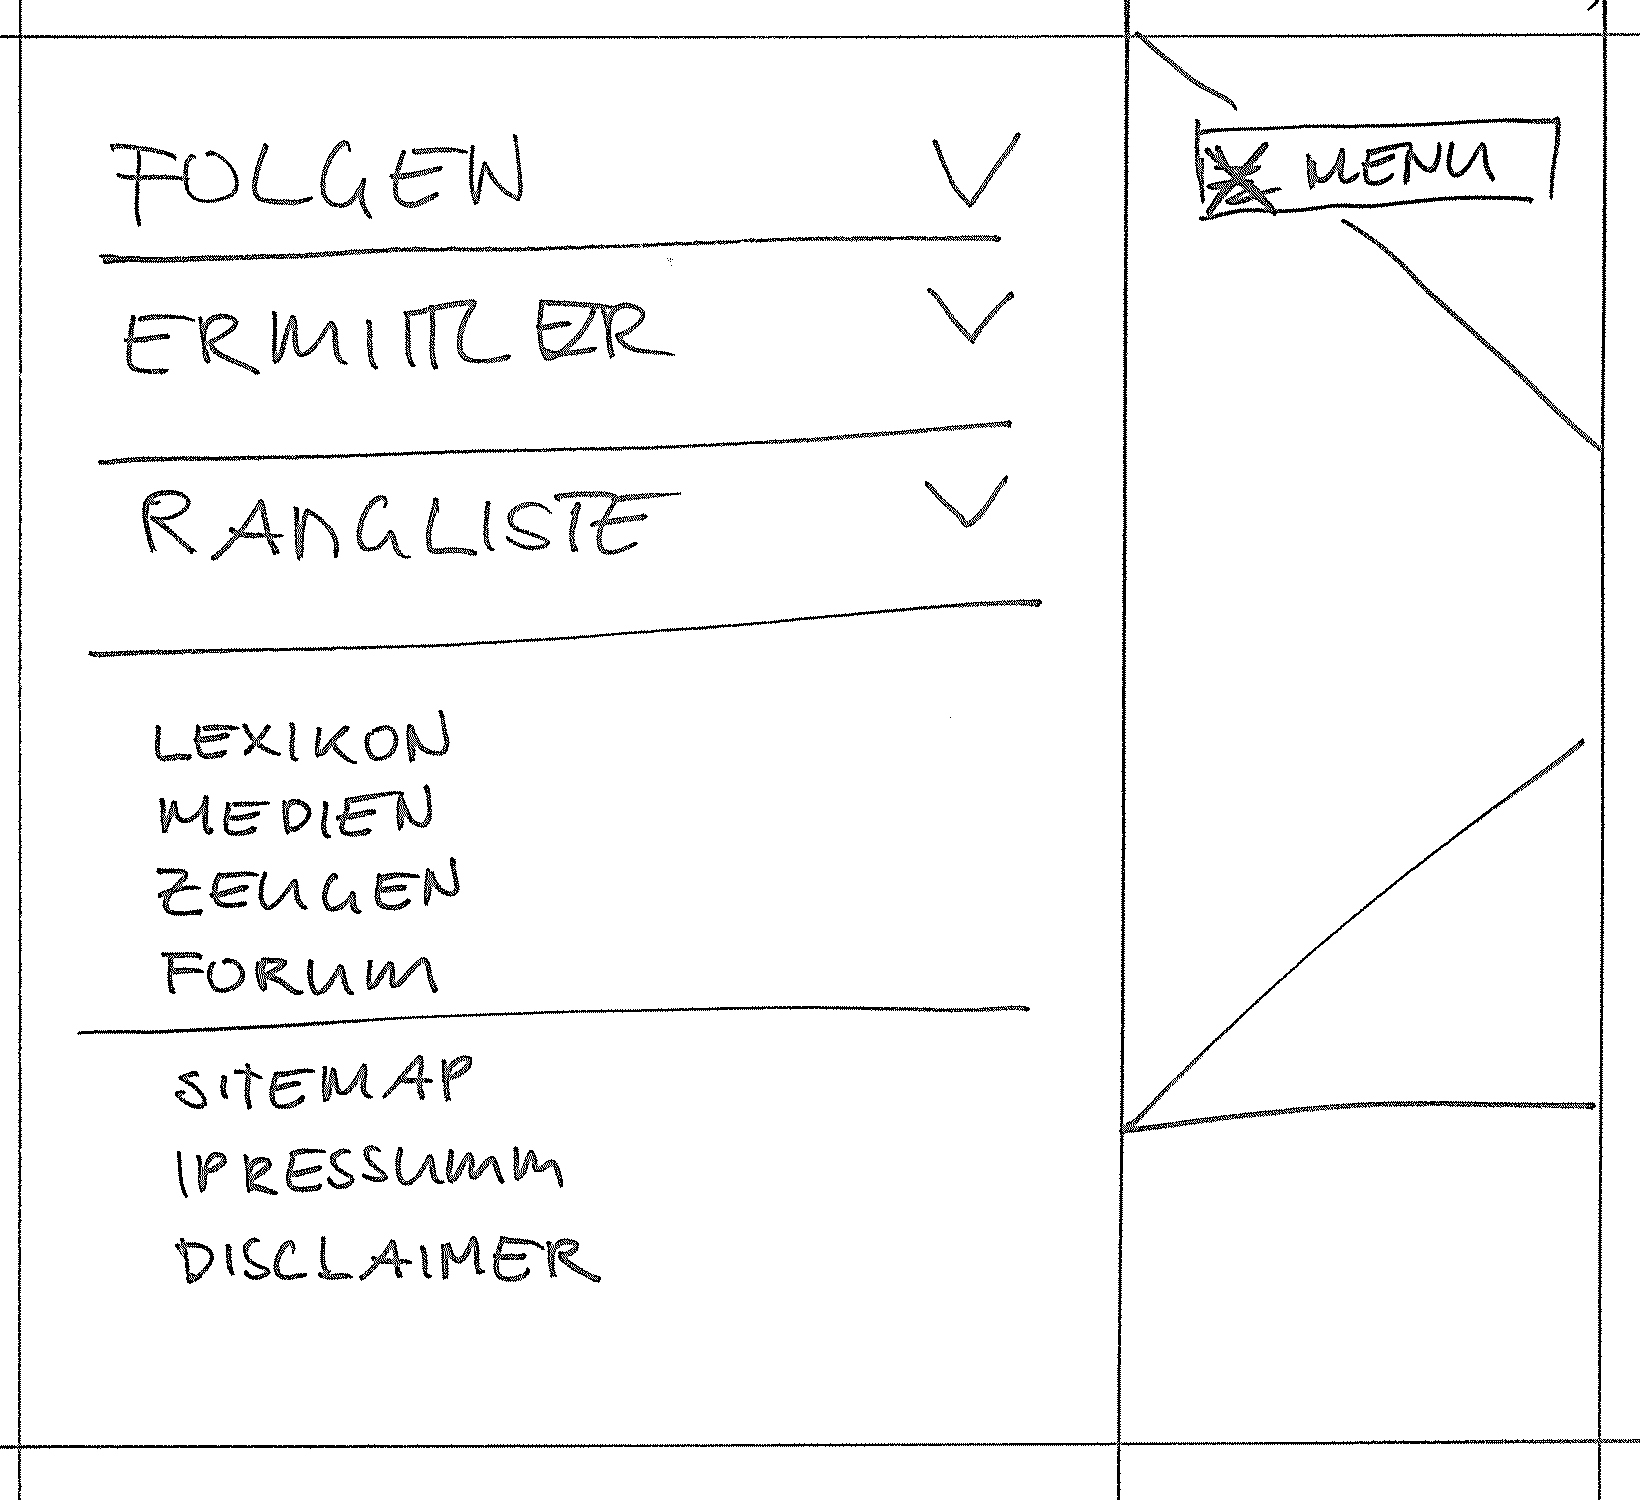 FOLGEN
MENU
ERMITTLER
RANGLISTE
LEXIKON
MEDIEN
ZEUGEN
FORUM
SITEMAP
IPRESSUMM
DISCLAIMER